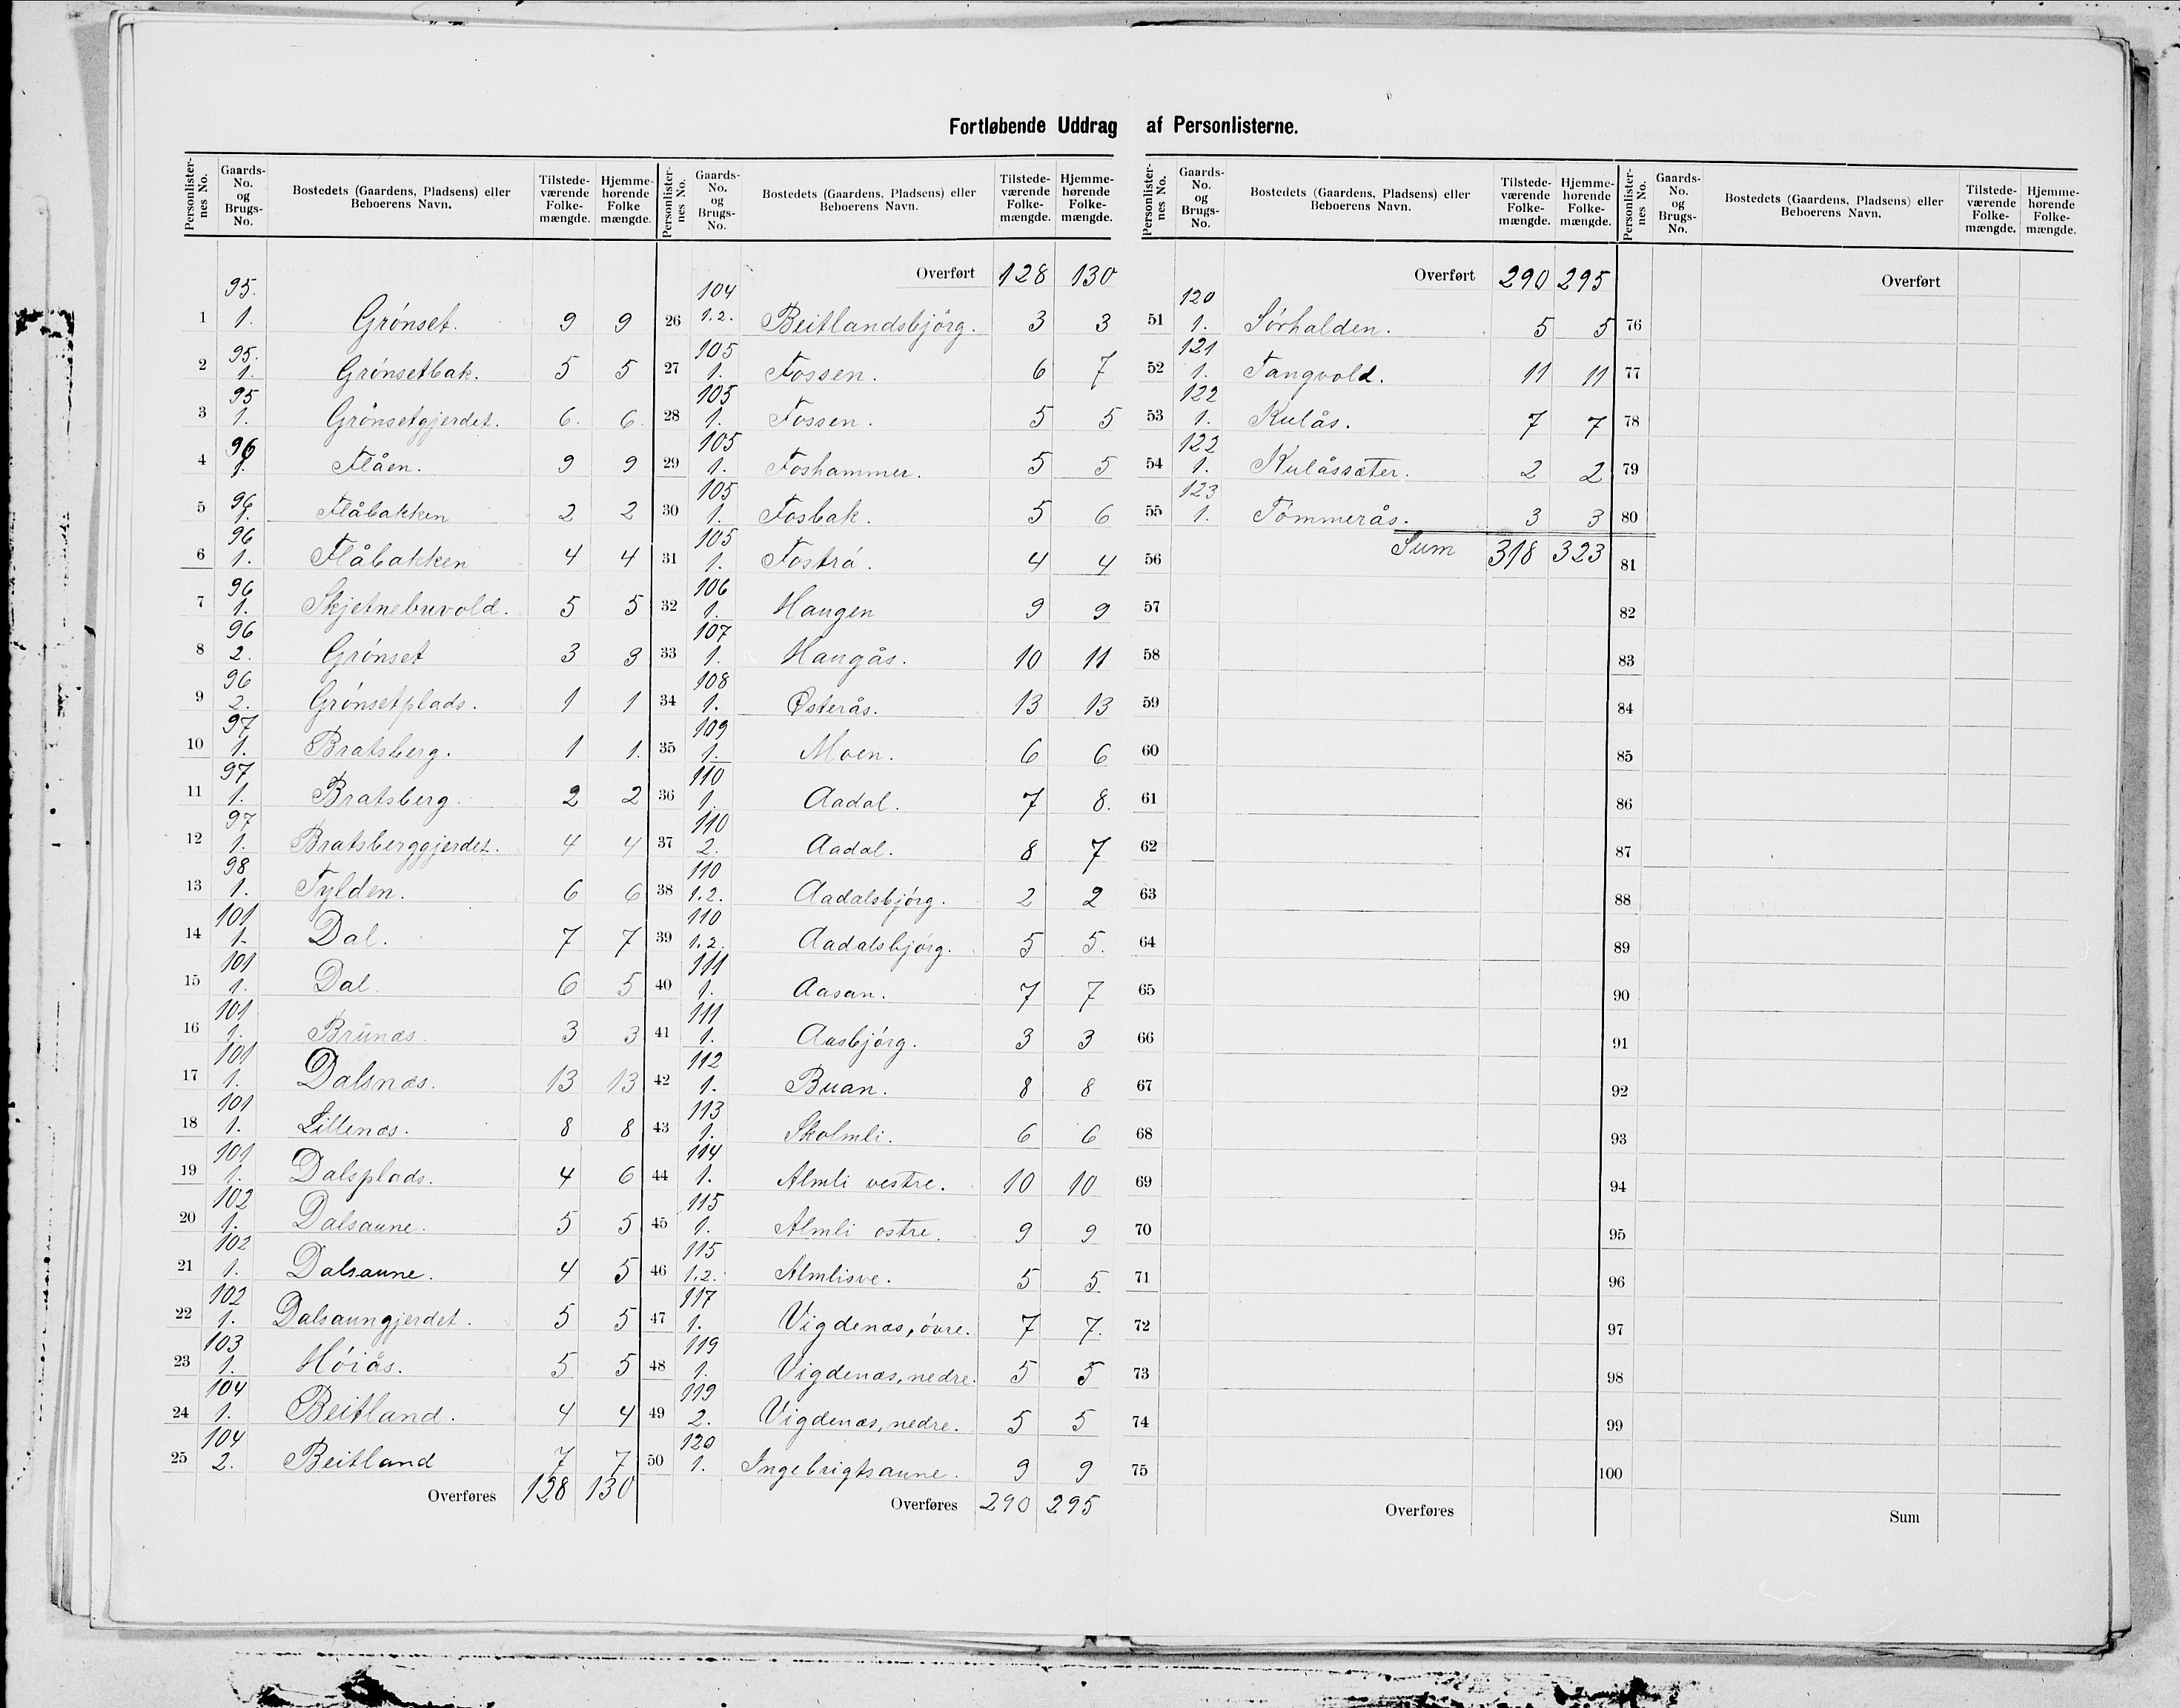 Fortløbende Uddrag af Personlisterne.
Personlisternes No. | Gaards-No. og Brugs-No. | Bostedets (Gaardens, Pladsens) eller Beboerens Navn. | Tilstedeværende Folkemængde. | Hjemmehørende Folkemængde.
1 | 95. 1. | Grönset. | 9 | 9
2 | 95. 1. | Grönsetbak. | 5 | 5
3 | 95 1. | Grönsetgjerdet. | 6. | 6.
4 | 96 1. | Flåen. | 9 | 9
5 | 96 1. | Flåbakken | 2 | 2
6 | 96 1. | Flåbakken | 4 | 4
7 | 96 1. | Skjetnebuvold. | 5 | 5
8 | 96 2. | Grönset | 3 | 3
9 | 96 2. | Grönsetplads. | 1 | 1
10 | 97 1. | Bratsberg. | 1 | 1.
11 | 97 1. | Bratsberg. | 2 | 2
12 | 97 1. | Bratsberggjerdet. | 4 | 4
13 | 98 1. | Tylden. | 6 | 6
14 | 101 1. | Dal. | 7 | 7
15 | 101 1. | Dal. | 6 | 5
16 | 101 1. | Brunæs. | 3 | 3
17 | 101 1. | Dalsnæs. | 13 | 13
18 | 101 1. | Lillenæs. | 8 | 8
19 | 101 1. | Dalsplads. | 4 | 6
20 | 102 1. | Dalsaune. | 5 | 5
21 | 102 1. | Dalsaune. | 4 | 5
22 | 102 1. | Dalsaungjerdet. | 5 | 5
23 | 103 1. | Höiås. | 5 | 5
24 | 104 1. | Beitland. | 4 | 4
25 | 104 2. | Beitland | 7 | 7
Overføres 128 130
Personlisternes No. | Gaards-No. og Brugs-No. | Bostedets (Gaardens, Pladsens) eller Beboerens Navn. | Tilstedeværende Folkemængde. | Hjemmehørende Folkemængde.
Overført 128 130
26 | 104 1.2. | Beitlandsbjörg. | 3 | 3
27 | 105 1. | Fossen. | 6 | 7
28 | 105 1. | Fossen. | 5 | 5
29 | 105 1. | Foshammer. | 5 | 5
30 | 105 1. | Fosbak. | 5 | 6
31 | 105 1. | Foströ. | 4 | 4
32 | 106 1. | Haugen | 9 | 9
33 | 107 1. | Haugås. | 10 | 11
34 | 108 1. | Østerås. | 13 | 13
35 | 109 1. | Moen. | 6 | 6
36 | 110 1. | Aadal. | 7 | 8.
37 | 110 2. | Aadal. | 8 | 7
38 | 110 1.2. | Aadalsbjörg. | 2 | 2
39 | 110 1.2. | Aadalsbjörg. | 5 | 5.
40 | 111 1. | Aasan. | 7 | 7
41 | 111 1. | Aasbjörg. | 3 | 3
42 | 112 1. | Buan. | 8 | 8
43 | 113 1. | Skolmli. | 6 | 6
44 | 114 1. | Almli vestre. | 10 | 10
45 | 115 1. | Almli ostre. | 9 | 9
46 | 115 1.2. | Almlisve. | 5 | 5
47 | 117 1. | Vigdenæs, övre. | 7 | 7.
48 | 119 1. | Vigdenæs, nedre. | 5 | 5
49 | 119 2. | Vigdenæs, nedre. | 5 | 5
50 | 120 1. | Ingebrigtsaune. | 9 | 9
Overføres 290 295
Personlisternes No. | Gaards-No. og Brugs-No. | Bostedets (Gaardens, Pladsens) eller Beboerens Navn. | Tilstedeværende Folkemængde. | Hjemmehørende Folkemængde.
Overført 290 295
51 | 120 1. | Sörhalden. | 5 | 5
52 | 121 1. | Tangvold. | 11 | 11
53 | 122 1. | Kulås. | 7 | 7
54 | 122 1. | Kulåssæter. | 2 | 2
55 | 123 1. | Tömmerås. | 3 | 3
56 | Sum 318 323
57
58
59
60
61
62
63
64
65
66
67
68
69
70
71
72
73
74
75
Overføres
Personlisternes No. | Gaards-No. og Brugs-No. | Bostedets (Gaardens, Pladsens) eller Beboerens Navn. | Tilstedeværende Folkemængde. | Hjemmehørende Folkemængde.
Overført
76
77
78
79
80
81
82
83
84
85
86
87
88
89
90
91
92
93
94
95
96
97
98
99
100
Sum